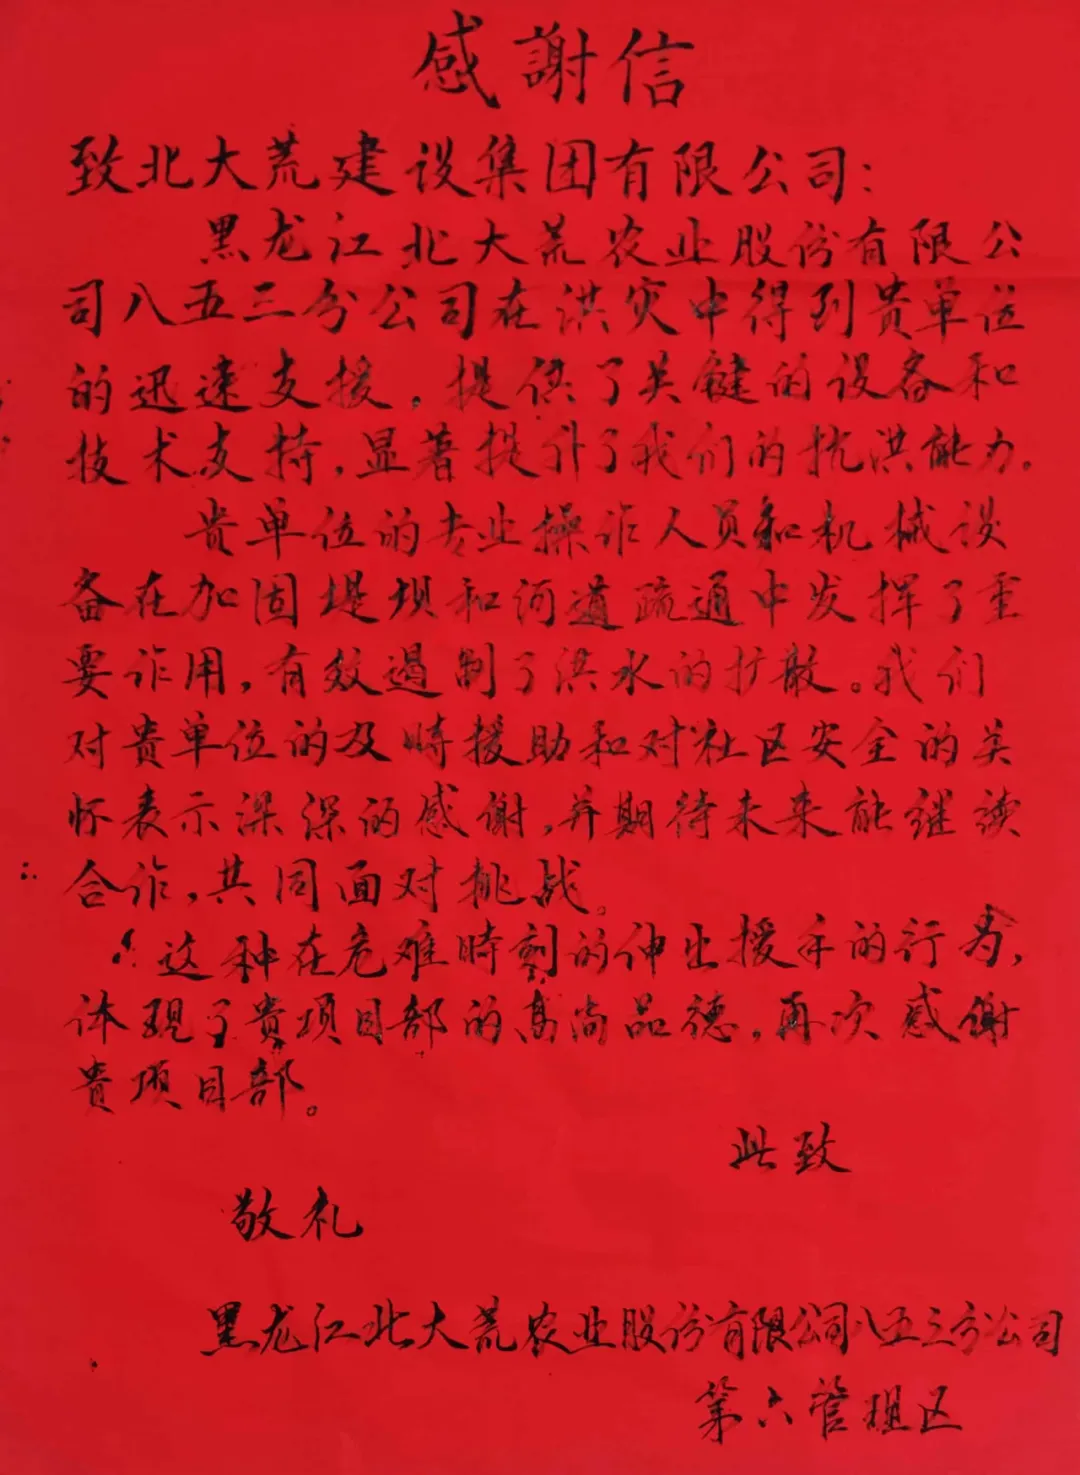 感謝信
致北大荒建设集团有限公司：
黑龙江北大荒农业股份有限公
司八五三分公司在洪灾中得到贵单位
的迅速支援，提供了关键的设备和
技术支持，显著提升了我们的抗洪能力。
贵单位的专业操作人员和机械设
备在加固堤坝和河道疏通中发挥了重
要作用，有效遏制了洪水的扩散。我们
对贵单位的及時援助和对社区安全的关
怀表示深深的感谢，并期待未来能继续
合作，共同面对挑战。
这种在危难時刻的伸出援手的行为，
体现了贵项目部的高尚品德，再次感谢
贵项目部。
此致
敬礼
黑龙江北大荒农业股份有限公司八五三分公司
第六管理区